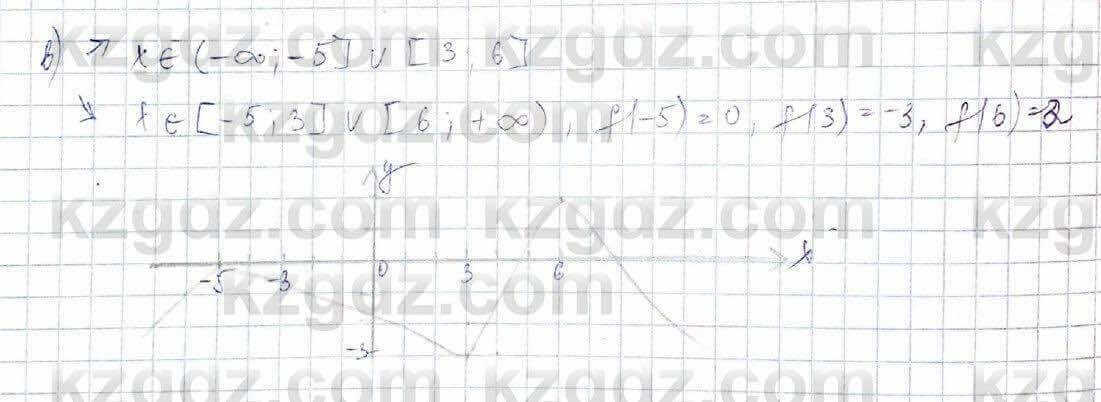 в) ↗ x ∈ (-∞; -5] ∪ [3; 6]
↘ x ∈ [-5; 3] ∪ [6; +∞), f(-5) = 0, f(3) = -3, f(6) = 2
y
-5 -3 0 3 6 x
-3
kzgdz.com kzgdz.com kzg
kzgdz.com kzgdz.com kzg
kzgdz.com kzgdz.com kzg
kzgdz.com kzgdz.com kzg
kzgdz.com kzgdz.com kzg